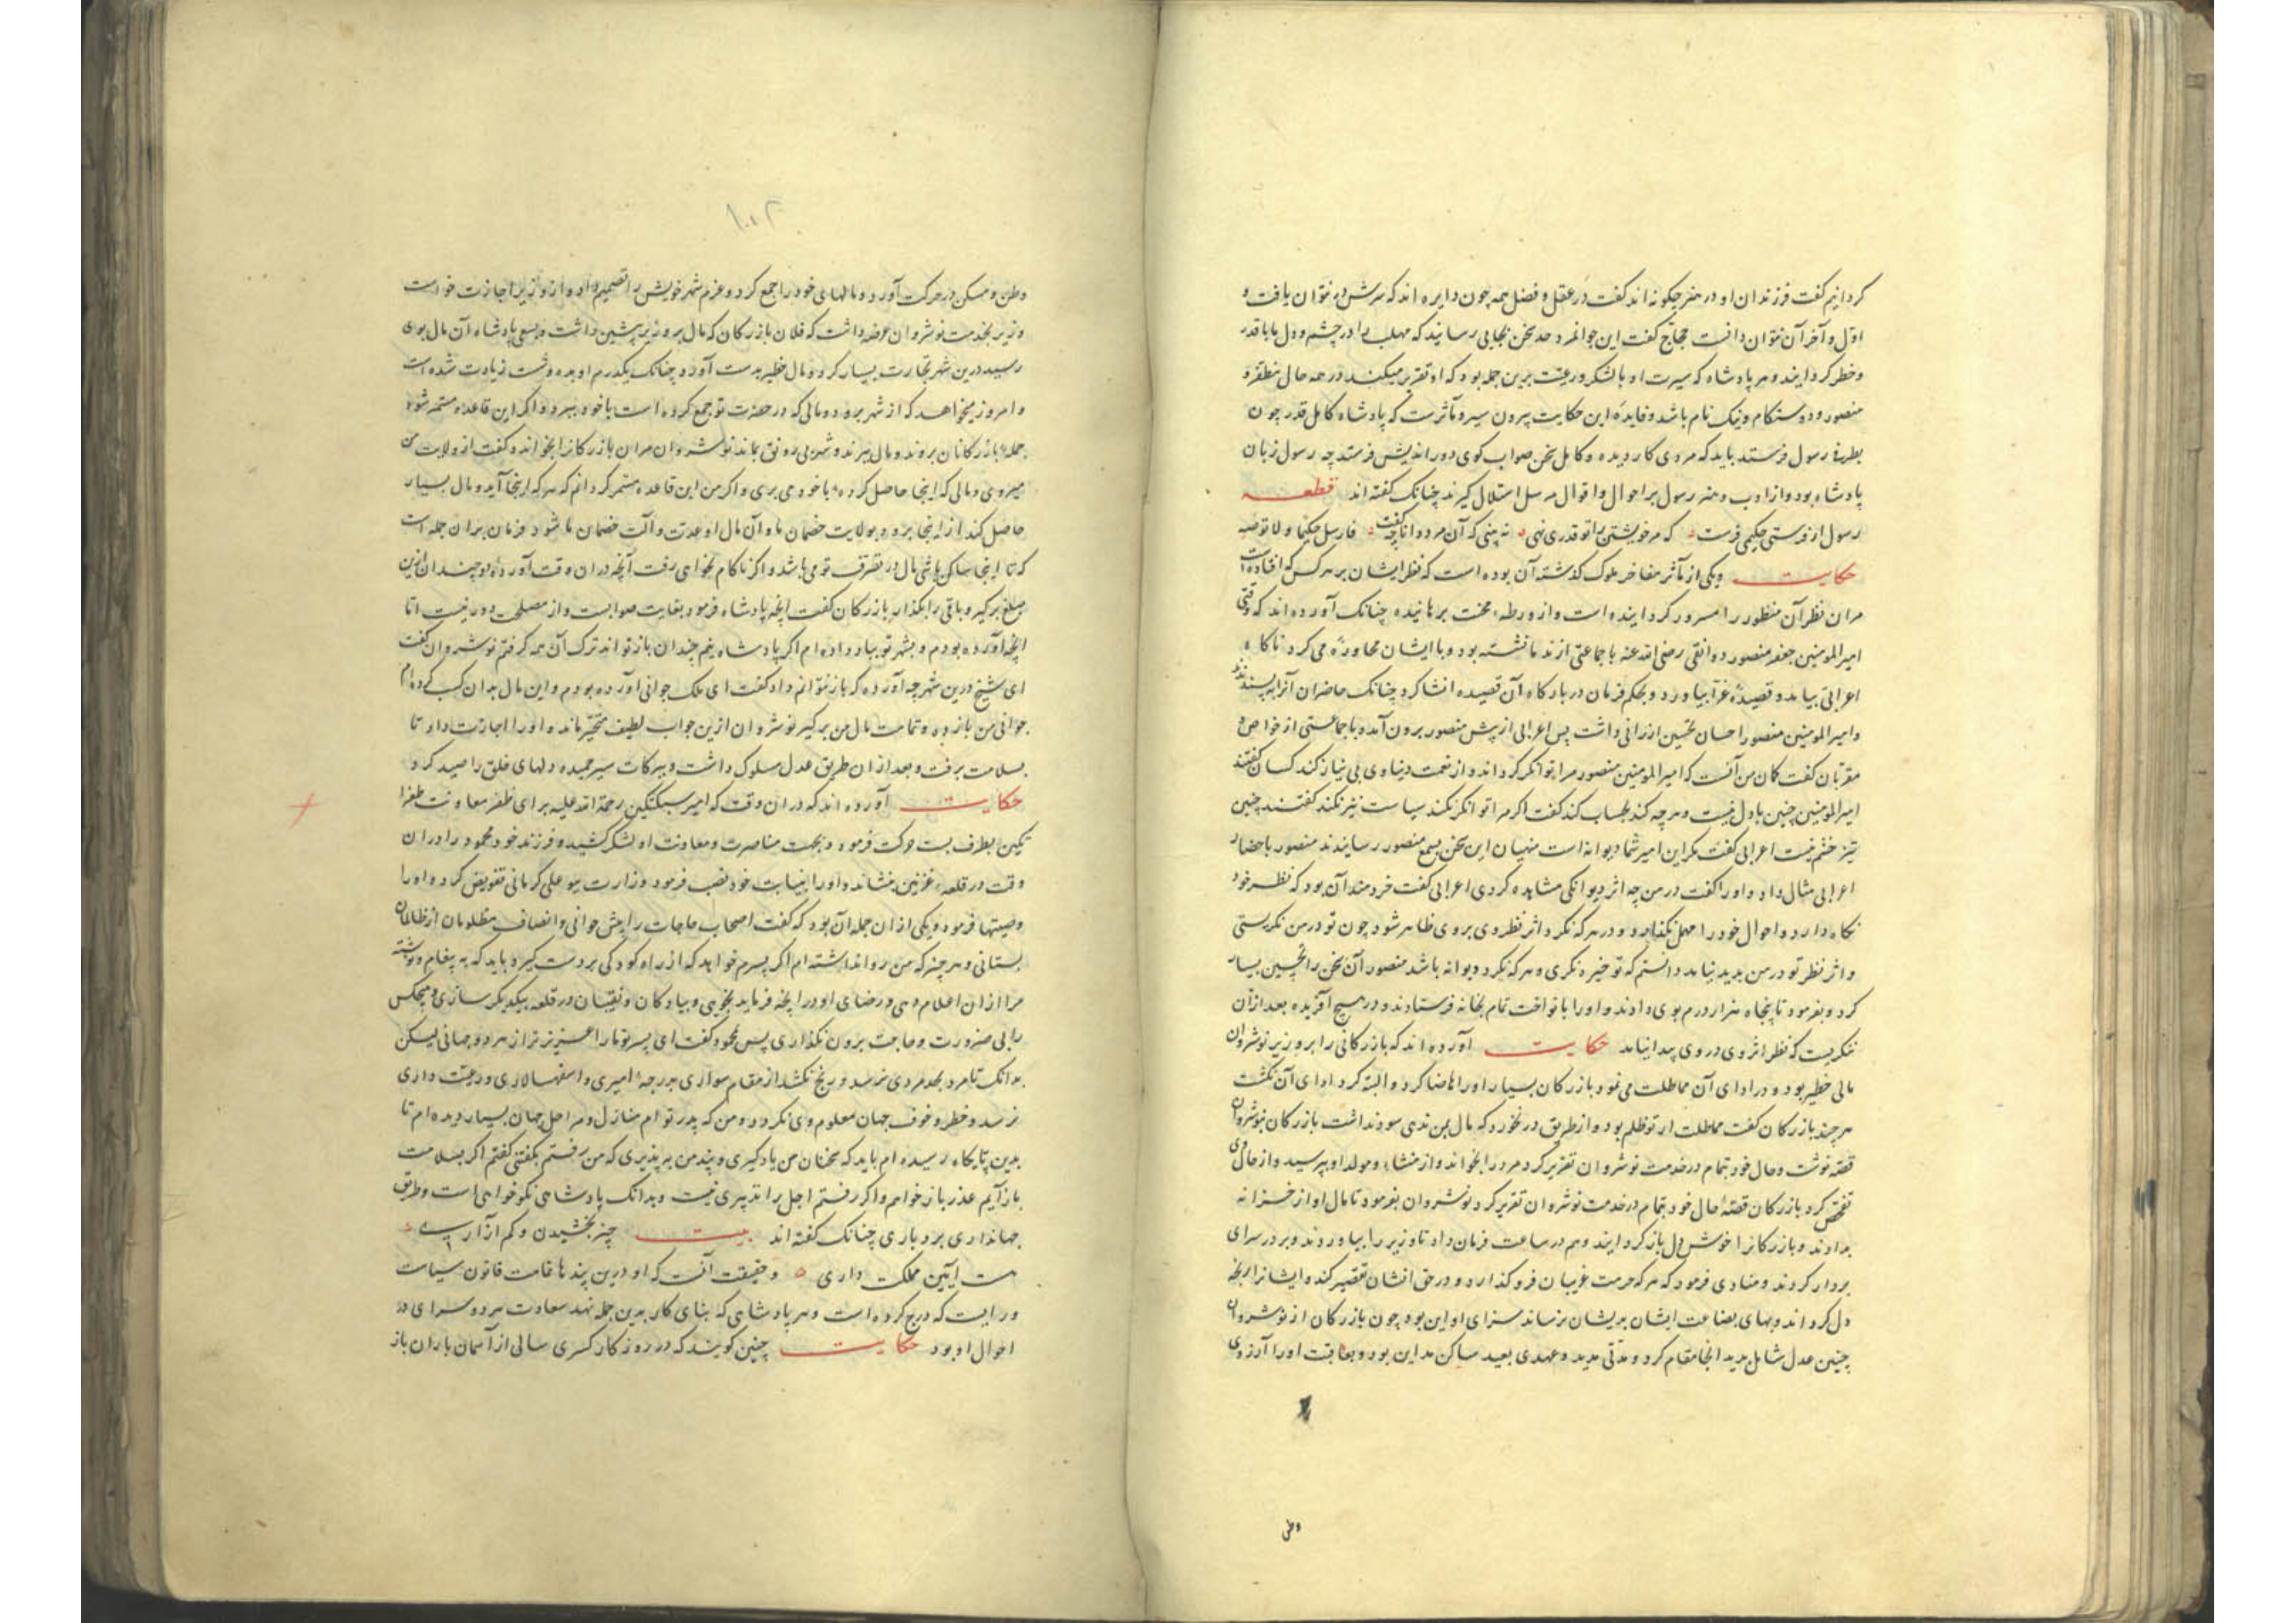 کردانیم گفت فرزندان او در هنر چگونه اند گفت در عقل و فضل همه چون دایره اند که سرش و بن نتوان یافت و
اول و آخر آن نتوان دانست حجاج گفت این جوانمرد حد سخن بجایی رسانید که مهلب را در چشم و دل ما با قدر
و خطر کردانید و هر پادشاه که سیرت او با لشکر و رعیت برین جمله بود که او تقریر میکند در همه حال مظفر و
منصور و دوستکام و نیک نام باشد و فایدهٔ این حکایت بیرون سیر و مآثرست که پادشاه کامل قدر چون
بطرفی رسول فرستد باید که مردی کاردیده و کامل سخن صواب کوی دور اندیش فرستد چه رسول زبان
پادشاه بود و از ادب و هنر رسول بر احوال و اقوال مرسل استدلال کیرند چنانک گفته اند قطعه
رسول ار فرستی حکیمی فرست که مر خویشتن را تو قدری نهی نه بینی که آن مرد دانا چه گفت فارسل حکیما و لا توصه
حکایت و یکی از مآثر مفاخر ملوک گذشته آن بوده است که نظر ایشان بر هر کس که افتاده است
مر آن نظر آن منظور را مسرور کردانیده است و از ورطهٔ محنت برهانیده چنانک آورده اند که وقتی
امیر المومنین جعفر منصور دوانقی رضی الله عنه با جماعتی از ندما نشسته بود و با ایشان محاوره می کرد ناکاه
اعرابی بیامد و قصیدهٔ غرا بیاورد و بحکم فرمان در بارکاه آن قصیده انشا کرد چنانک حاضران آنرا بپسندیدند
و امیر المومنین منصور احسان تحسین ارزانی داشت پس اعرابی از پیش منصور برون آمد و با جماعتی از خواص و
مقربان گفت کمان من آنست که امیر المومنین منصور مرا توانکر کرداند و از نعمت دنیاوی بی نیاز کند کسان گفتند
امیر المومنین چنین باذل نیست و هر چه کند بحساب کند گفت اکر مرا توانکر نکند سیاست نیز نکند گفتند چنین
تیز خشم نیست اعرابی گفت مکر این امیر شما دیوانه است منهیان این سخن بسمع منصور رسانیدند منصور باحضار
اعرابی مثال داد و او را گفت در من چه اثر دیوانکی مشاهده کردی اعرابی گفت خردمند آن بود که نظر خود
نکاه دارد و احوال خود را مهمل نکذارد و در هر که نکرد اثر نظر وی بر وی ظاهر شود چون تو در من نکریستی
و اثر نظر تو در من پدید نیامد دانستم که تو خیره نکری و هر که خیره نکرد دیوانه باشد منصور آن سخن را تحسین بسیار
کرد و بفرمود تا پنجاه هزار درم بوی دادند و او را با نواخت تمام بخانه فرستادند و در هیچ آفریده بعد از آن
ننکریست که نظر اثر وی در وی پیدا نیامد حکایت آورده اند که بازرکانی را بر وزیر نوشروان
مالی خطیر بود و در ادای آن مماطلت می نمود بازرکان بسیار او را تقاضا کرد و البته کرد ادای آن نکشت
هر چند بازرکان گفت مماطلت از تو ظلم بود و از طریق در نخورد که مال بمن ندهی سود نداشت بازرکان بنوشروان
قصه نوشت و حال خود بتمام در خدمت نوشروان تقریر کرد مرد را بخواند و از منشاء و مولد او بپرسید و از حال وی
تفحص کرد بازرکان قصهٔ حال خود بتمام در خدمت نوشروان تقریر کرد نوشروان بفرمود تا مال او از خزانه
بدادند و بازرکانرا خوش دل باز کردانید و هم در ساعت فرمان داد تا وزیر را بیاوردند و بر در سرای
بردار کردند و منادی فرمود که هر که حرمت غریبان فرو کذارد و در حق افشان تقصیر کند و ایشانرا رنجه
دل کرداند و بهای بضاعت ایشان بدیشان نرساند سزای او این بود چون بازرکان از نوشروان
چنین عدل شامل بدید آنجا مقام کرد و مدتی مدید و عهدی بعید ساکن مداین بود و بعاقبت او را آرزوی
وطن
۱۰۰۲
وطن و مسکن در حرکت آورد و مالهای خود را جمع کرد و عزم شهر خویش را تصمیم داد و از وزیر اجازت خواست
وزیر بخدمت نوشروان عرضه داشت که فلان بازرکان که مال بر وزیر پیشین داشت و بسعی پادشاه آن مال بوی
رسید درین شهر تجارت بسیار کرد و مال خطیر بدست آورد چنانک یکدرم او بده و شست زیادت شده است
و امروز میخواهد که از شهر برود و مالی که در حضرت تو جمع کرده است با خود ببرد و اکر این قاعده مستمر شود
جملهٔ بازرکانان بروند و مال ببرند و شهر بی رونق بماند نوشروان مر آن بازرکانرا بخواند و گفت از ولایت من
میروی و مالی که اینجا حاصل کرده با خود می بری و اکر من این قاعده مستمر کردانم که هر که اینجا آید و مال بسیار
حاصل کند از اینجا برود بولایت خصمان ما و آن مال او عدت و آلت خصمان ما شود فرمان بران جمله است
که تا اینجا ساکن باشی مال در تصرف تو می باشد و اکر ناکام بخواهی رفت آنچه در آن وقت آوردهٔ دو چندان ازین
مبلغ برکیر و باقی را بکذار بازرکان گفت انچه پادشاه فرمود بغایت صوابست و از مصلحت دور نیست اما
انچه آورده بودم و بشهر تو بباد داده ام اکر پادشاه نیم چندان باز تواند ترک آن همه کرفتم نوشروان گفت
ای شیخ درین شهر چه آوردهٔ که باز نتوانم داد گفت ای ملک جوانی آورده بودم و این مال بدان کسب کرده ام
جوانی من بازده و تمامت مال من برکیر نوشروان ازین جواب لطیف متحیر ماند و او را اجازت داد تا
بسلامت برفت و بعد از ان طریق عدل مسلوک داشت و ببرکات سیر حمیده دلهای خلق را صید کرد
حکایت آورده اند که در ان وقت که امیر سبکتکین رحمة الله علیه برای ظفر معاونت طغرا
تکین بطرف بست حرکت فرمود و بجهت مناصرت و معاونت او لشکر کشید و فرزند خود محمود را در ان
وقت در قلعهٔ غزنین بنشاند و او را بنیابت خود نصب فرمود وزارت ببو علی کرمانی تفویض کرد و او را
وصیتها فرمود و یکی از ان جمله آن بود که گفت اصحاب حاجات را پیش خوانی و انصاف مظلومان از ظالمان
بستانی و هر چیز که من روا نداشته ام اکر پسرم خواهد که از راه کودکی بر دست کیرد باید که به پیغام و نوشته
مرا از ان اعلام دهی و رضای او در انچه فرماید بجویی و پیادکان و نقیبان در قلعه بیکدیکر سازی و هیچکس
را بی ضرورت و حاجت برون نکذاری پس محمود گفت ای پسر تو ما را عزیزتر از هر دو جهانی لیکن
بدانک تا مرد بحد مردی نرسد و رنج نکشد از مقام سواری بدرجهٔ امیری و اسفهسالاری و رعیت داری
نرسد و خطر و خوف جهان معلوم وی نکردد و من که پدر تو ام منازل و مراحل جهان بسیار دیده ام تا
بدین پایکاه رسیده ام باید که سخنان من یادکیری و پند من بپذیری که من رفتم و گفتنی گفتم اکر بسلامت
باز آیم عذر باز خواهم و اکر رفتم اجل را تدبیری نیست و بدانک پادشاهی نکو خواهی است و طریق
جهانداری بردباری چنانک گفته اند بیت چیز بخشیدن و کم آزاری
هست آیین مملکت داری و حقیقت آنست که او درین پندها تمامت قانون سیاست
و رایست که درج کرده است و هر پادشاهی که بنای کار بدین جمله نهد سعادت هر دو سرای در
احوال او بود حکایت چنین کویند که در روزکار کسری سالی از آسمان باران باز